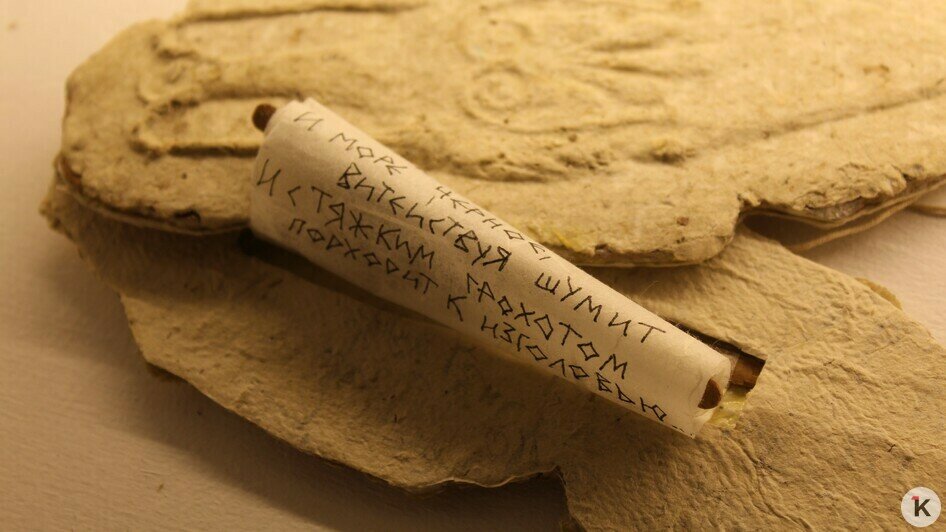 И МОРЕ ЧЕРНОЕ,
ВИТЕЙСТВУЯ ШУМИТ
И С ТЯЖКИМ ГРОХОТОМ
ПОДХОДИТ К ИЗГОЛОВЬЮ..
K